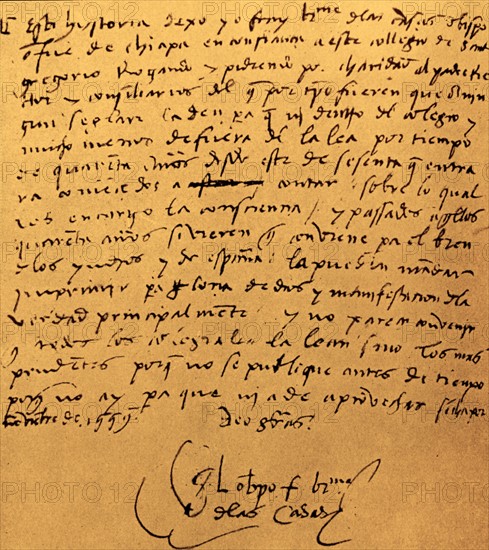 Esta hystoria dexo yo fray bme delas casas obispo
q fue de chiapa en confiança a este collegio de sant
gregorio Rogando y pidiendo por charidad al padre Rec
tor y consiliarios del q por tpo fueren que a nin
gun seglar la den pa q ni dentro del colegio y
mucho menos de fuera del la lea por tiempo
de quarenta años desde este de sesenta q entra
ra començados a contar sobre lo qual
les encargo la consciencia / y passados aqllos
quarenta años si vieren q conviene pa el bien
de los yndios y de españa la pueden mandar
imprimir pa gloria de dios y manifestacion dla
verdad principalmente / y no parece convenir
q todos los colegiales la lean sino los mas
prudentes porq no se publique antes de tiempo
porq no ay pa que ni a de aprovechar
de 1559 Deo grãs.
El obpo f brme
delas Casas
PHOTO 12